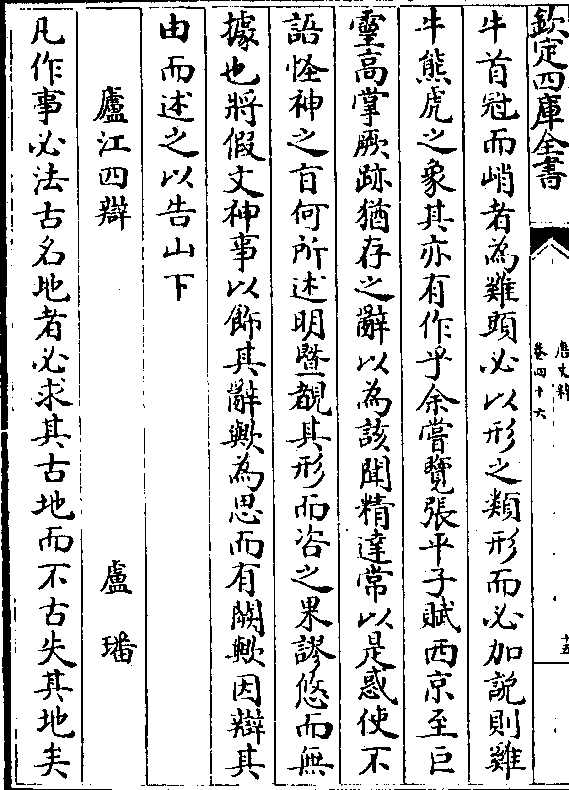 欽定四庫全書
唐文粹
卷四十六
十五
牛首冠而峭者為雞頭必以形之類形而必加說則雞
牛熊虎之象其亦有作乎余嘗覽張平子賦西京至巨
靈高掌厥跡猶存之辭以為該聞精達常以是惑使不
語怪神之旨何所述明暨覩其形而咨之果謬悠而無
據也將假文神事以飾其辭歟為思而有闕歟因辯其
由而述之以告山下
廬江四辯 盧璠
凡作事必法古名地者必求其古地而不古失其地矣